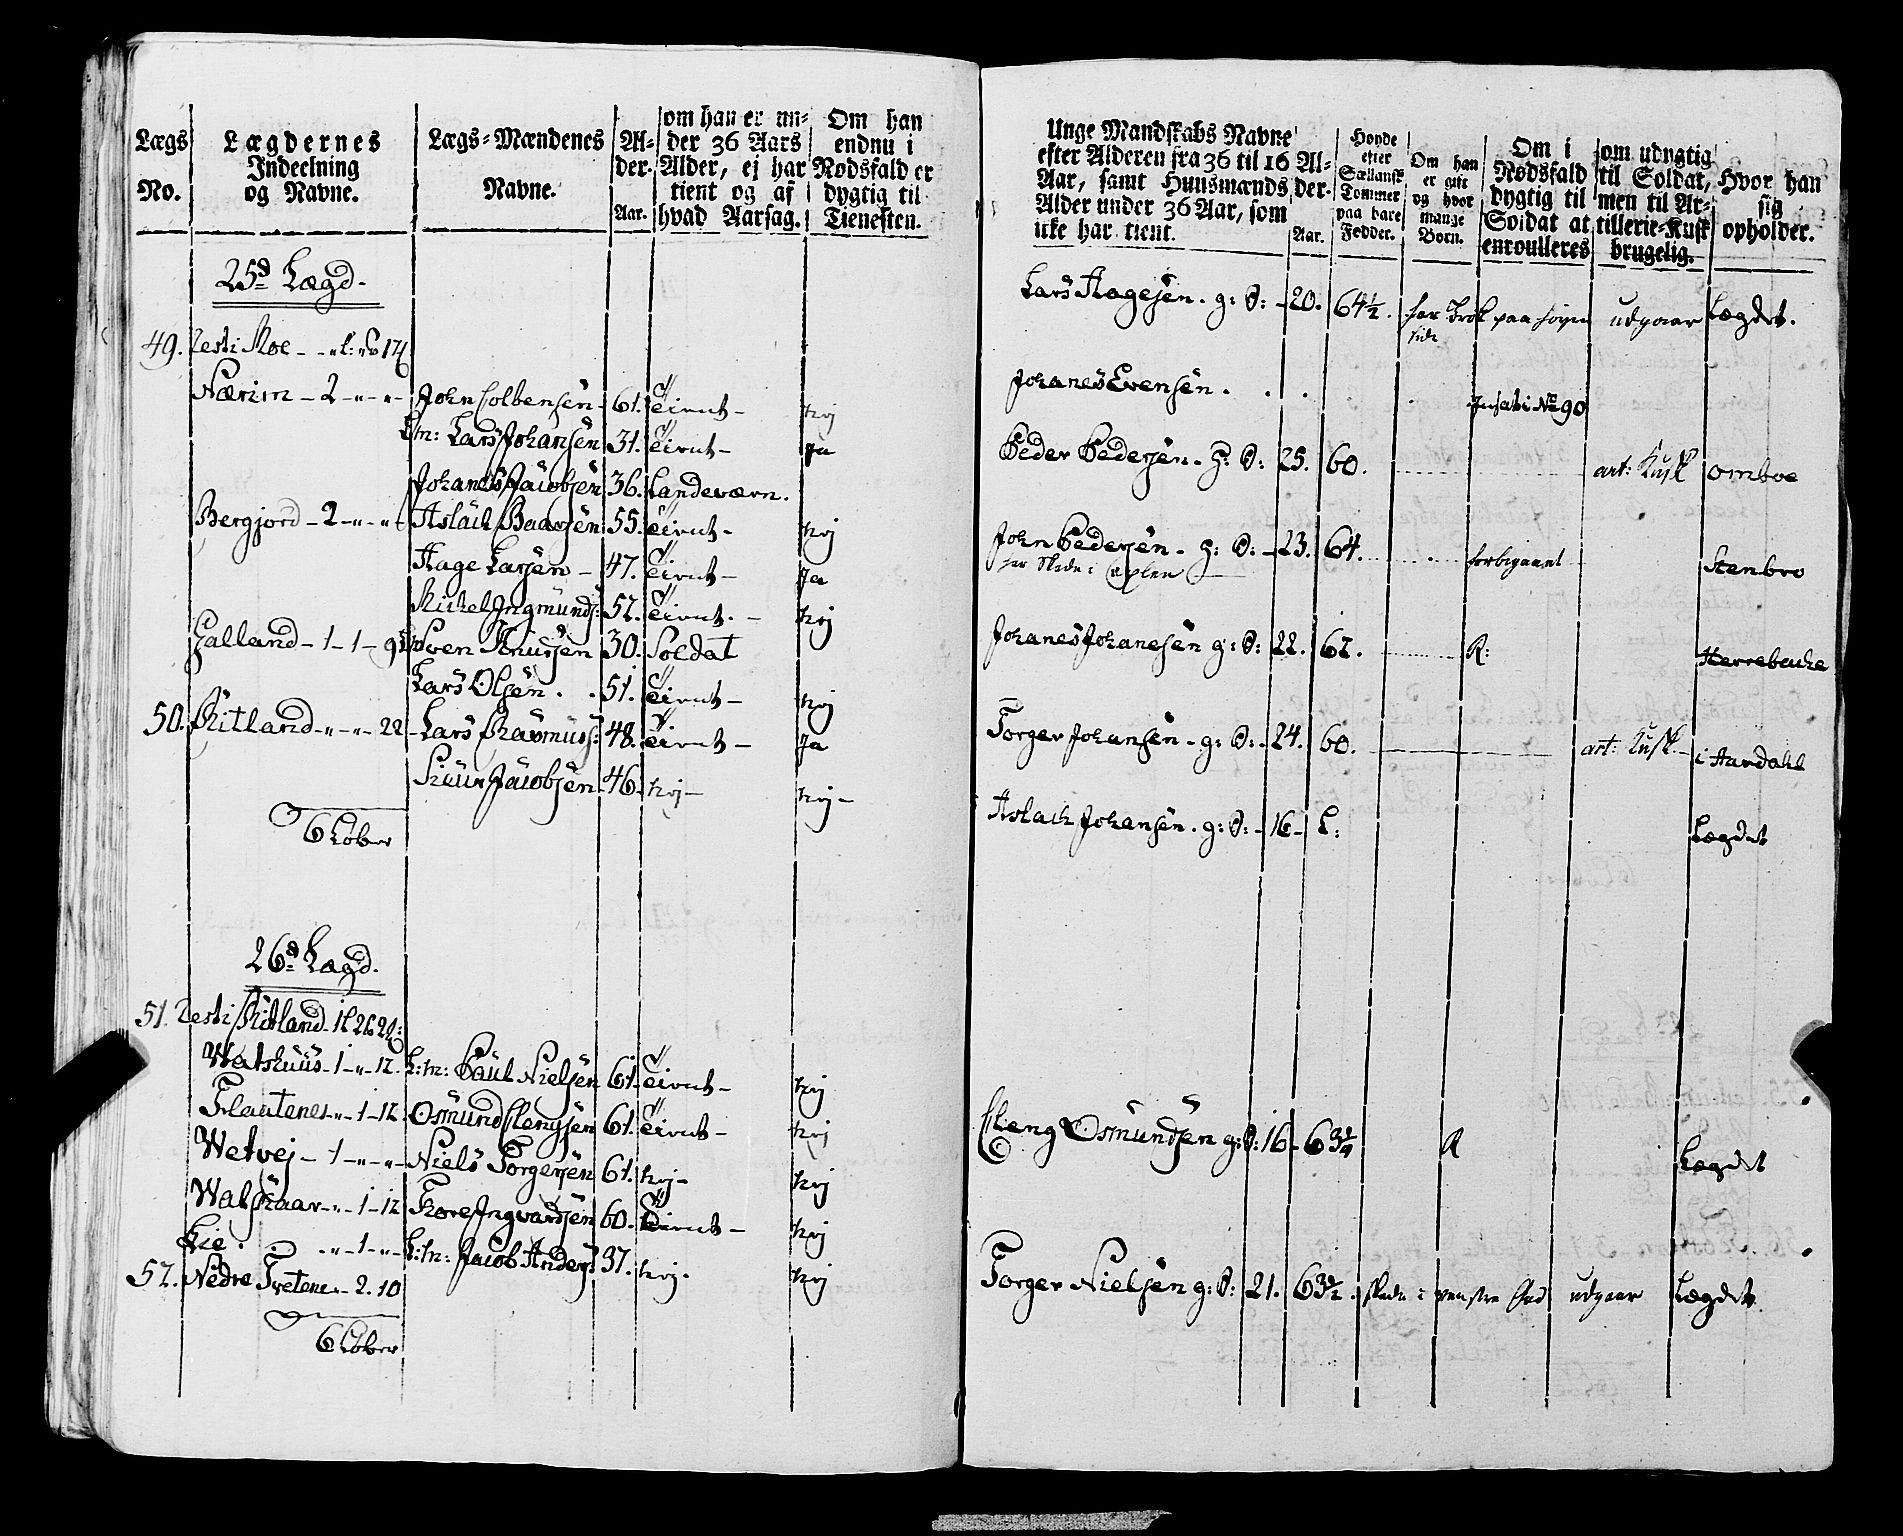 Lægs No.
Lægdernes Indeelning og Navne.
Lægs-Mændenes Navne.
Alder. Aar.
om han er under 36 Aars Alder, ej har tient og af hvad Aarsag.
Om han endnu i Nødsfald er dygtig til Tienesten.
25d Lægd.
49. Resti Moe
Nærim - 2 - " - " - John Colbensen 61. tient - nej
Lars Johansen 31. tient - Ja
Johanes Jacobsen 36. Landeværn.
Bergjord - 2 - " - " Aslach Baarsen 55. tient - nej
Aage Larsen - 47. tient - Ja
Michel Ingmunds: 52. tient. - nej
Galland - 1 - 1 - 9 Sven Knusen 30. Soldat
Lars Olsen . . 51. tient - nej
50. Ritland - " - " - 22 - Lars Rasmuss: 48. tient - Ja
Siuur Jacobsen 46. nej - nej -
6 Løber
26d Lægd.
51. Resti Ritland
Watshuus - 1 - " - 12. L:m: Paul Nielsen 61. tient - nej
Flautene - " - 1 - 12. Osmund Clengsen 61. tient - nej
Wetvej - 1 - " - " - Niels Torgersen 61. nej - nej
Walskaar - " - 1 - 12 Tore Ingvardsen 60. tient - nej
Lie . . " - 1 - " - L:m: Jacob Anders: 37. nej. nej
52. Nedre Tvetene - 2. 10
6 Løber
Unge Mandskabs Navne efter Alderen fra 36 til 16 Aar, samt Huusmænds Alder under 36 Aar, som ikke har tient.
Alder. Aar.
Høyde efter Sællansk Tommer paa bare Fødder.
Om han er gift og hvor mange Børn.
Om i Nødsfald dygtig til Soldat at enroulleres
om udygtig til Soldat, men til Artillerie-Kusk brugelig.
Hvor han sig opholder.
Lars Aagesen. g: S: - 20. 64½. har Brok paa høyre side udgaar Lægdet.
Johanes Evensen . . . Insat i No 90
Peder Pedersen - g: S: 25. 60. art: Kusk omboe
John Pedersen - g: S: - 23. 64. forbigaaet Stenbro
har Skade i
Johanes Johanesen g: S: 22. 62. R:
Torger Johansen - g: S: - 24. 60. art: Kusk - i Aardahl
Aslach Johansen. g: S: - 16 - L: Lægdet
Cleng Osmundsen g: S: 16 - 63¼ R Lægdet
Torger Nielsen g: S: 21. 63½. skade i venstre udgaar Lægdet